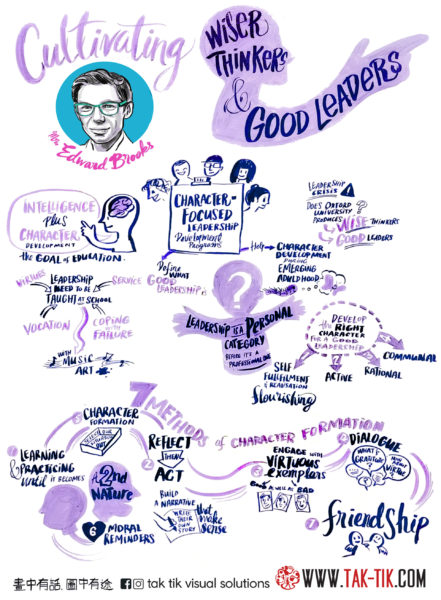 Cultivating
WISER
THINKERS
&
GOOD LEADERS
Mr. Edward Brooks
INTELLIGENCE
plus
CHARACTER
DEVELOPMENT
the GOAL of EDUCATION
CHARACTER-
FOCUSED
LEADERSHIP
Development
Programs
LEADERSHIP
CRISIS
DOES OXFORD
UNIVERSITY
PRODUCES
WISE THINKERS
GOOD LEADERS
Help
CHARACTER
DEVELOPMENT
DURING
EMERGING
ADULTHOOD
VIRTUES
LEADERSHIP
NEED TO BE
TAUGHT AT SCHOOL
SERVICE
Define
WHAT
GOOD
LEADERSHIP
IS
?
LEADERSHIP IS A PERSONAL
CATEGORY
BEFORE IT'S A
PROFESSIONAL ONE
VOCATION
COPING
WITH
FAILURE
WITH MUSIC
ART
DEVELOP
the RIGHT
CHARACTER
FOR A GOOD
LEADERSHIP
COMMUNAL
RATIONAL
ACTIVE
SELF
FULFILMENT
& REALISATION
flourishing
7 METHODS of CHARACTER FORMATION
CHARACTER
FORMATION
1
LEARNING
& PRACTICING
Until IT BECOMES
A 2nd
NATURE
2
REFLECT
THEN
ACT
BUILD
A NARRATIVE
WRITE
THEIR OWN
STORY
that make
sense
ENGAGE with
VIRTUOUS
exemplars
GOOD AS WELL AS BAD
DIALOGUE
WHAT'S
GRATITUDE?
6
MORAL
REMINDERS
7
friendship
畫中有話.圖中有途
tak tik visual solutions
WWW.TAK-TIK.COM